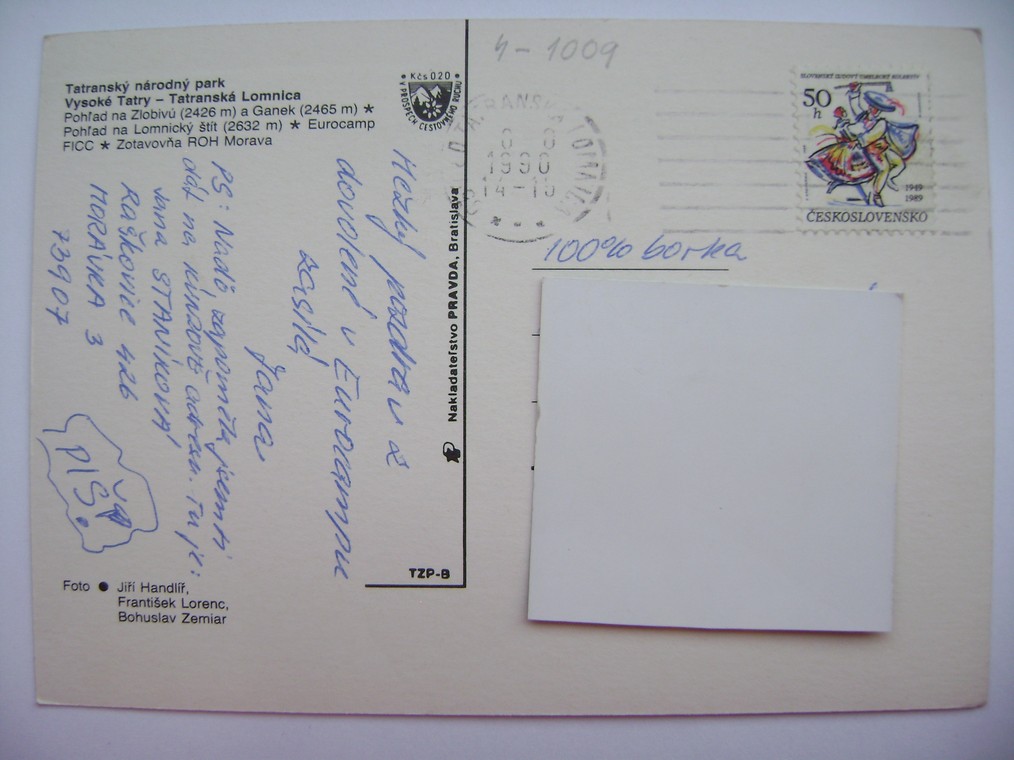 Tatranský národný park
Vysoké Tatry – Tatranská Lomnica
Pohľad na Zlobivú (2426 m) a Ganek (2465 m) ★
Pohľad na Lomnický štít (2632 m) ★ Eurocamp
FICC ★ Zotavovňa ROH Morava
Kčs 020
V PROSPECH CESTOVNÉHO RUCHU
Hezký pozdrav z
dovolené v Eurocampu
zasílá
Jana
PS: Naďo, zapoměla jsem ti
dát na Kinžově adresu. Tu je:
Jana STANÍKOVÁ
RAŠKOVICE 426
MORÁVKA 3
73907
PIŠ!
Nakladateľstvo PRAVDA, Bratislava
TZP-B
Foto ● Jiří Handlíř,
František Lorenc,
Bohuslav Zemiar
4-1009
1990
SLOVENSKÝ ĽUDOVÝ UMELECKÝ KOLEKTÍV
50
h
1949
1989
ČESKOSLOVENSKO
100% borka